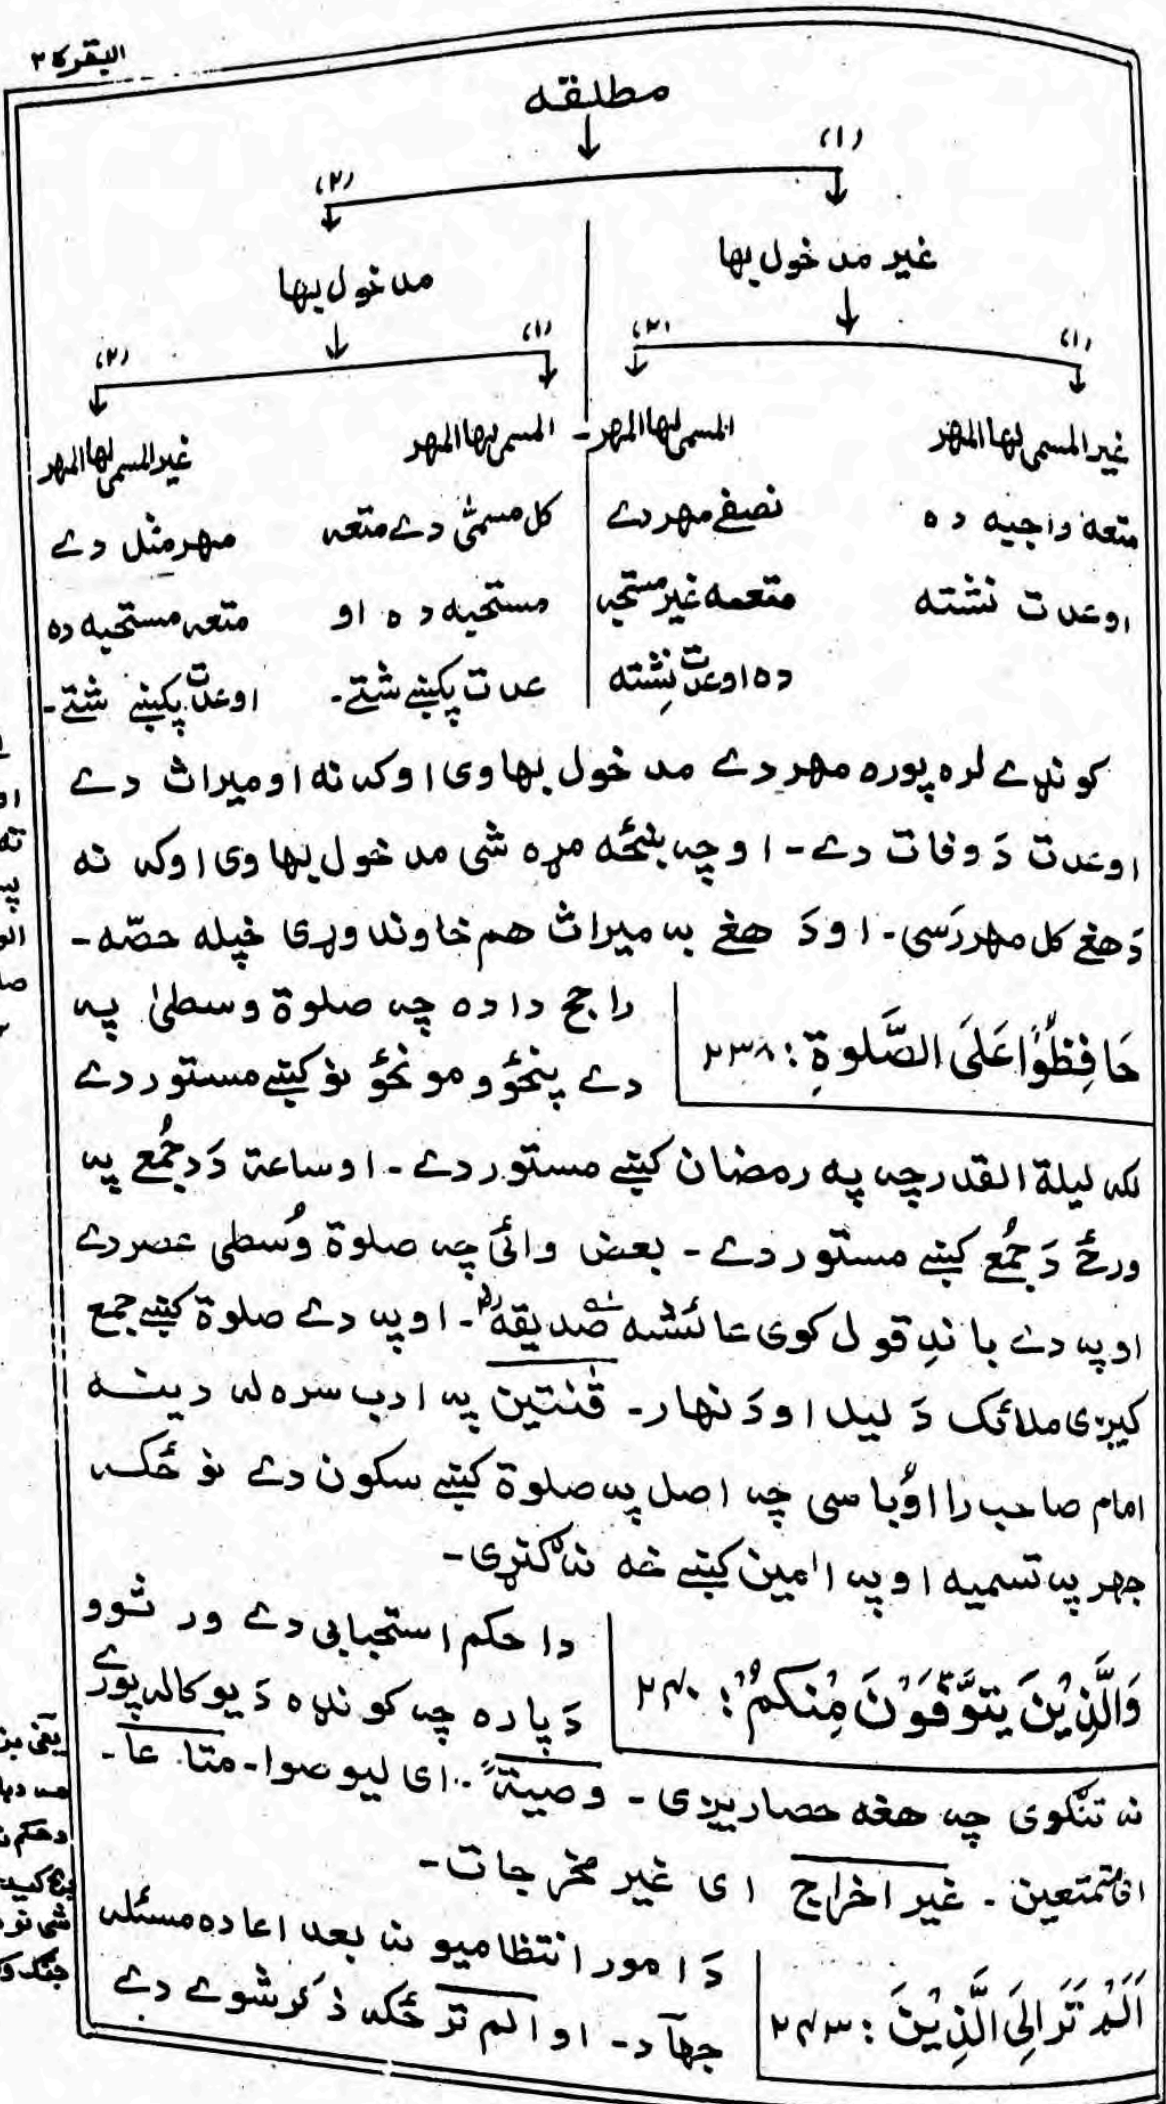 البقرة ٢
مطلقه
(١)
(٢)
غیر مدخول بها
مدخول بها
(١)
(٢)
(١)
(٢)
غیر المسمی لها المهر
المسمی لها المهر
المسمی لها المهر
غیر المسمی لها المهر
متعه واجبه ده
نصفے مهر دے
کل مسمیٰ دے متعه
مهر مثل دے
اوعدت نشته
متعمه غیر مستحبه
مستحبه ده او
متعه مستحبه ده
ده اوعدت نِشته
عدت پکښے شتے۔
اوعدت پکښے شتے۔
کونډے لره پوره مهر دے مدخول بها وی اوکه نه او میراث دے
اوعدت دَ وفات دے۔ اوچه ښځه مړه شی مدخول بها وی اوکه نه
دَ هغے کل مهر رَسی۔ اودَ هغے به میراث هم خاوند وړی خپله حصّه۔
حَافِظُوْا عَلَی الصَّلٰوةِ : ٢٣٨
راجح داده چه صلوة وسطیٰ په
دے پنځو ومونځو نو کښے مستور دے
لکه لیلة القدر چه په رمضان کښے مستور دے۔ اوساعة دَ دجُمُع په
ورځ دَ جُمُع کښے مستور دے۔ بعض وائی چه صلوة وُسطی عصر دے
اوپه دے باندِ قول کوی عائشه صدیقهؓ۔ اوپه دے صلوة کښے جمع
کیږی ملائک دَ لیل اودَ نهار۔ قٰنتین په ادب سره له دینه
امام صاحب را اوُباسی چه اصل په صلوة کښے سکون دے نو ځکه
جهر په تسمیه اوپه اٰمین کښے خه نه ګنړی۔
وَالَّذِيْنَ يُتَوَفَّوْنَ مِنْكُمْ : ٢٤٠
دا حکم استحبابی دے ور ثوو
دَپاره چه کونډه دَ یو کاله پورے
نه تنګوی چه هغه حصاریږی۔ وصیةً۔ ای لیوصوا۔ متاعا۔
ای متمتعین۔ غیر اخراج ای غیر مخرجات۔
اَلَمْ تَرَ اِلَی الَّذِيْنَ : ٢٤٣
دَ امور انتظامیو نه بعد اعاده مسئله
جهاد۔ او الم تر ځکه ذکر شوے دے